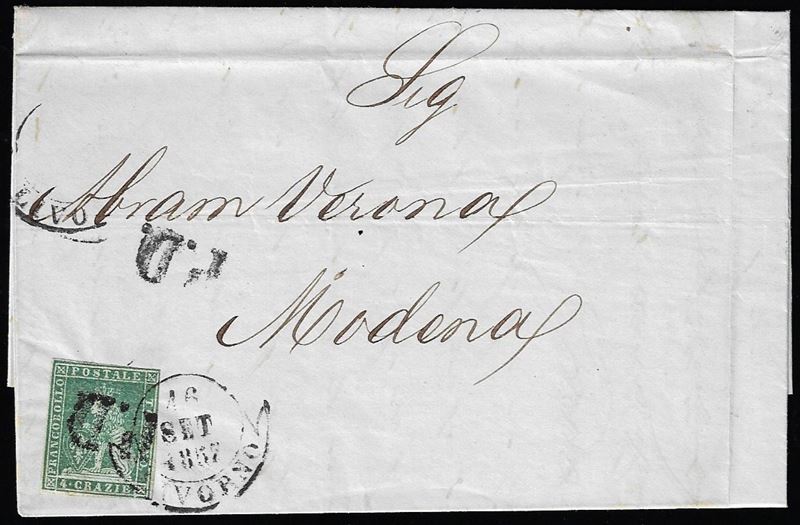 Sig
Abram Verona
P.D.
Modena
FRANCOBOLLO POSTALE
4 · CRAZIE
P.D.
16
SET
1857
LIVORNO